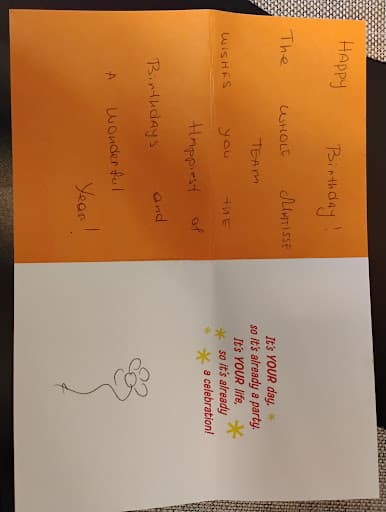 HAPPY Birthday!
The WHOLE MATISSE
TEAM
WISHES YOU THE
Happiest of
Birthdays and
A Wonderful
Year!
It's YOUR day,
so it's already a party.
It's YOUR life,
so it's already
a celebration!